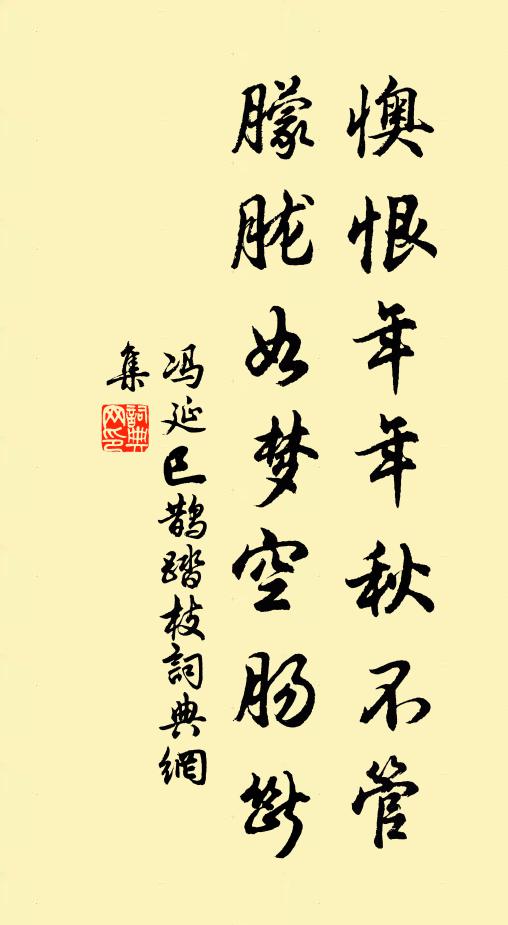 懊恨年年秋不管
朦胧如梦空肠断
冯延巳鹊踏枝詞典網
集
詞典网印